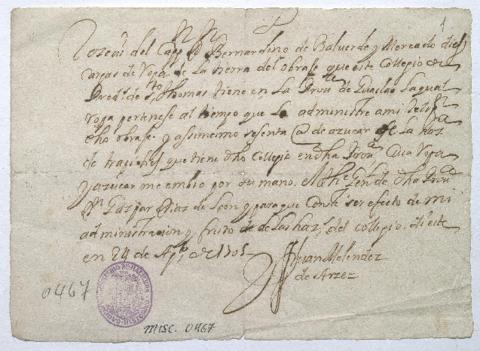 del Capp.n D Bernardino de Baluerde y Mercado diez
cargas de Ropa de la tierra del obraje que este Collegio
de S.to Thomas tiene en la Prou.a la qual
Ropa pertenese al tiempo que la administre
dho obraje y assimesmo sesenta @ de azucar de la haz.
de que tiene dho Collegio en dha Prou.a Cuia Ropa
y azucar me embio por su mano Gen. de dha Prou.a
D Gaspar Diaz de Leon y para que Conste ser efecto de mi
administracion y fruto de las haz.s del collegio di este
en 24 de Ag.to de 1705
Juan Melendez
de Arze
0467
MISC. 0467